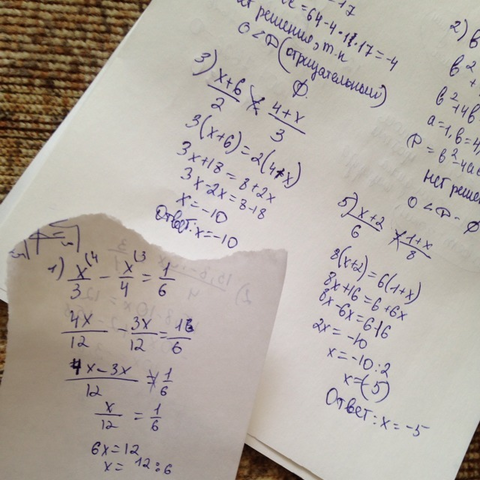 = 64-4·17·17=-4
решения, т.к
(отрицательный)
Ø
3) x+6/2 = 4+x/3
3(x+6)=2(4+x)
3x+18=8+2x
3x-2x=8-18
x=-10
Ответ: x=-10
2)
a=1, b=4,
нет решен
5) x+2/6 = 1+x/8
8(x+2)=6(1+x)
8x+16=6+6x
8x-6x=6-16
2x=-10
x=-10:2
x=(-5)
Ответ: x=-5
1) x/3 - x/4 = 1/6
4x/12 - 3x/12 = 1/6
4x-3x/12 = 1/6
x/12 = 1/6
6x=12
x= 12:6